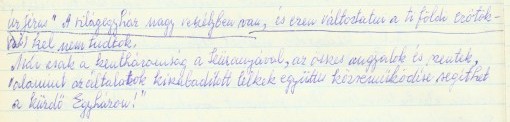 Úr Jézus" A világegyház nagy veszélyben van, és ezen változtatni a ti földi erőtök-
ből kel nem tudtok.
Már csak a szentháromság a Szűzanyával, az összes angyalok és szentek,
valamint az általatok kiszabadított lelkek együttes közreműködése segíthet
a küzdő Egyházon!"